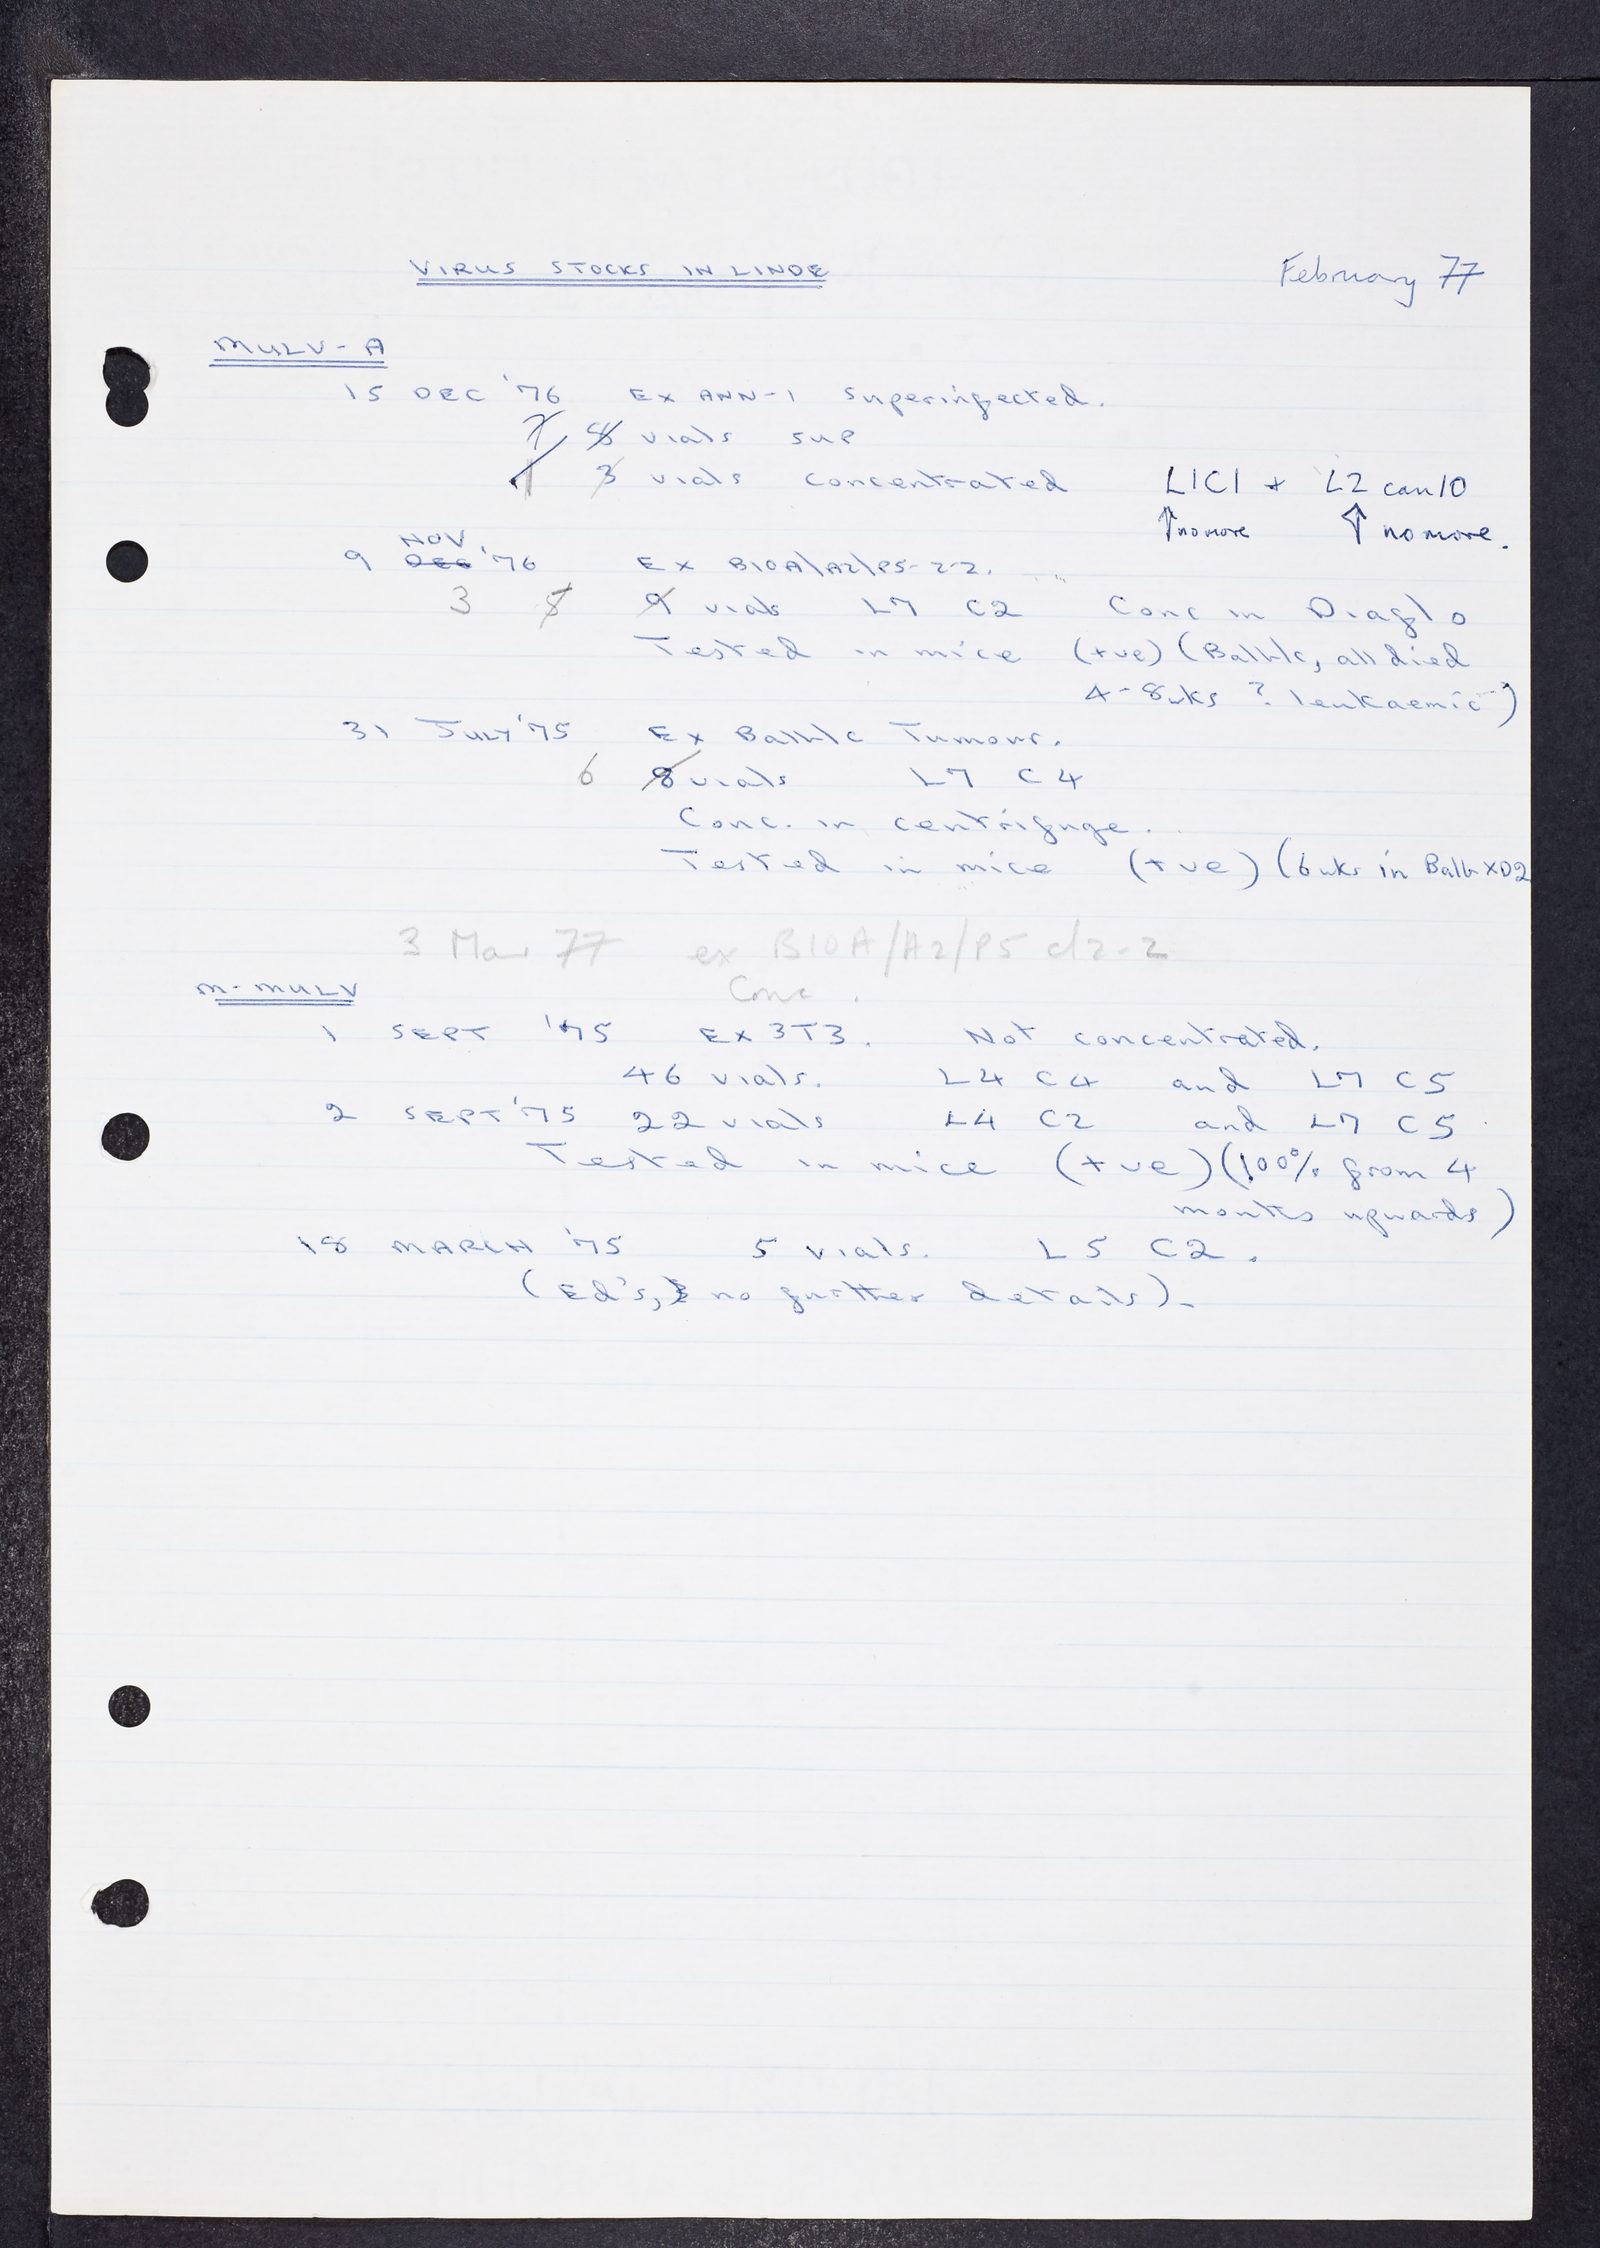 VIRUS STOCKS IN LINDE February 77
MULV-A
15 DEC '76 EX ANN-1 superinfected.
7 8 vials sup
1 3 vials concentrated L1C1 + L2 can10
↑ no more ↑ no more.
NOV
9 DEC '76 EX B10A/A2/P5-2-2.
3 5 9 vials L7 C2 Conc in Diaflo
Tested in mice (+ve) (Balb/c, all died
4-8wks ? leukaemic)
31 JULY '75 Ex Balb/c Tumour.
6 8 vials L7 C4
Conc. in centrifuge.
Tested in mice (+ve) (6wks in Balb X D2
3 Mar 77 ex B10A/A2/P5 cl2-2
Conc.
M-MULV
1 SEPT '75 EX 3T3. Not concentrated.
46 vials. L4 C4 and L7 C5
2 SEPT '75 22 vials L4 C2 and L7 C5
Tested in mice (+ve) (100% from 4
months upwards)
18 MARCH '75 5 vials. L5 C2.
(Ed's, no further details).